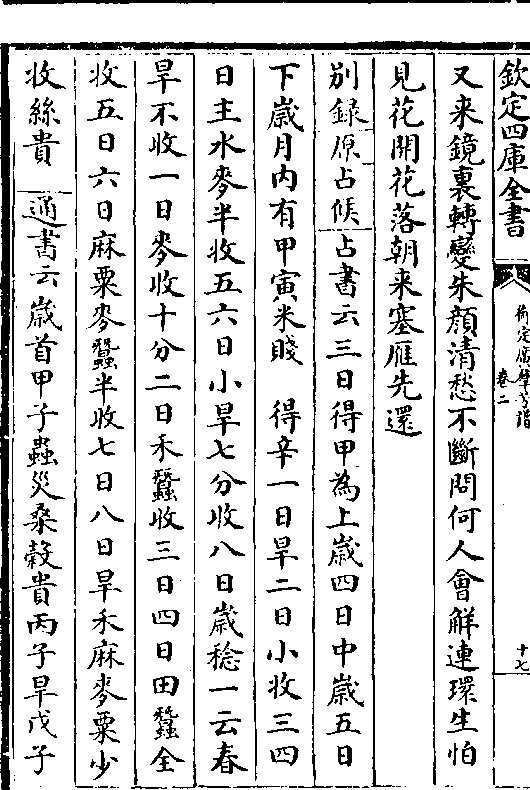 欽定四庫全書
御定佩文齋廣羣芳譜 卷二
十七
又来鏡裏轉變朱顔清愁不斷問何人會解連環生怕
見花開花落朝来塞雁先還
别錄原占候占書云三日得甲為上歲四日中歲五日
下歲月内有甲寅米賤 得辛一日旱二日小收三四
日主水麥半收五六日小旱七分收八日歲稔一云春
旱不收一日麥收十分二日禾蠶收三日四日田蠶全
收五日六日麻粟麥蠶半收七日八日旱禾麻麥粟少
收絲貴 通書云歲首甲子蟲災桑榖貴丙子旱戊子